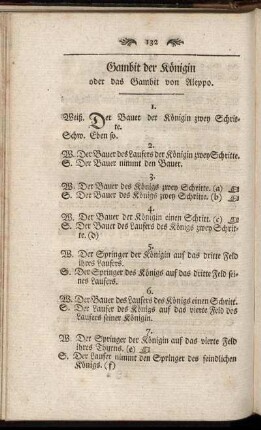 132
Gambit der Königin
oder das Gambit von Aleppo.
1.
Weiß. Der Bauer der Königin zwey Schrit-
te.
Schw. Eben so.
2.
W. Der Bauer des Laufers der Königin zwey Schritte.
S. Der Bauer nimmt den Bauer.
3.
W. Der Bauer des Königs zwey Schritte. (a)
S. Der Bauer des Königs zwey Schritte. (b)
4.
W. Der Bauer der Königin einen Schritt. (c)
S. Der Bauer des Laufers des Königs zwey Schrit-
te. (d)
5.
W. Der Springer der Königin auf das dritte Feld
ihres Laufers.
S. Der Springer des Königs auf das dritte Feld sei-
nes Laufers.
6.
W. Der Bauer des Laufers des Königs einen Schritt.
S. Der Laufer des Königs auf das vierte Feld des
Laufers seiner Königin.
7.
W. Der Springer der Königin auf das vierte Feld
ihres Thurns. (e)
S. Der Laufer nimmt den Springer des feindlichen
Königs. (f)